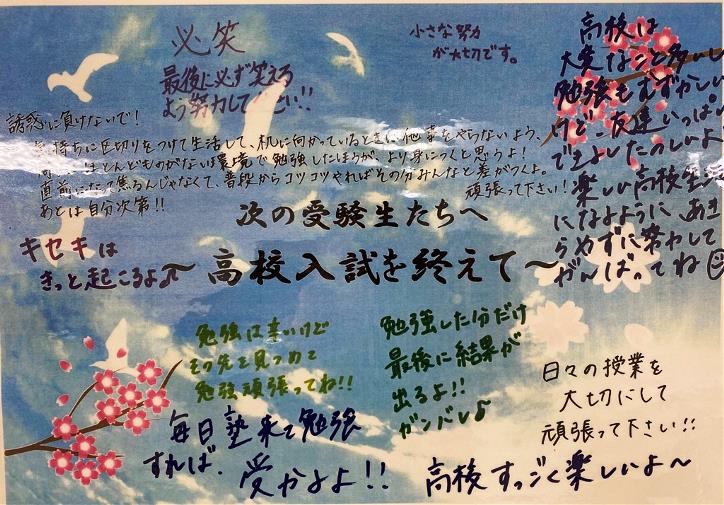 必笑
最後に必ず笑える
よう努力して下さい!!
小さな努力
が大切です。
高校は
大変なこと多いし
勉強もむずかしい
けど、友達いっぱい
できよしたのしいよ
楽しい高校生い
になよように、あき
らめずに努力して
がんばってね
誘惑に負けないで!
気持ちに区切りをつけて生活して、机に向かっているときに他事をやらないよう、
ほとんどものがない環境で勉強したほうが、より身につくと思うよ!
直前になって焦るんじゃなくて、普段からコツコツやればその分みんなと差がつくよ。
あとは自分次第!!
頑張って下さい!
次の受験生たちへ
～高校入試を終えて～
キセキは
きっと起こるよ♪
勉強は辛いけど
その先を見つめて
勉強頑張ってね!!
勉強した分だけ
最後に結果が
出るよ!!
ガンバレ♪
日々の授業を
大切にして
頑張って下さい!!
毎日塾来て勉強
すれば、
受かるよ!!
高校すっごく楽しいよ～